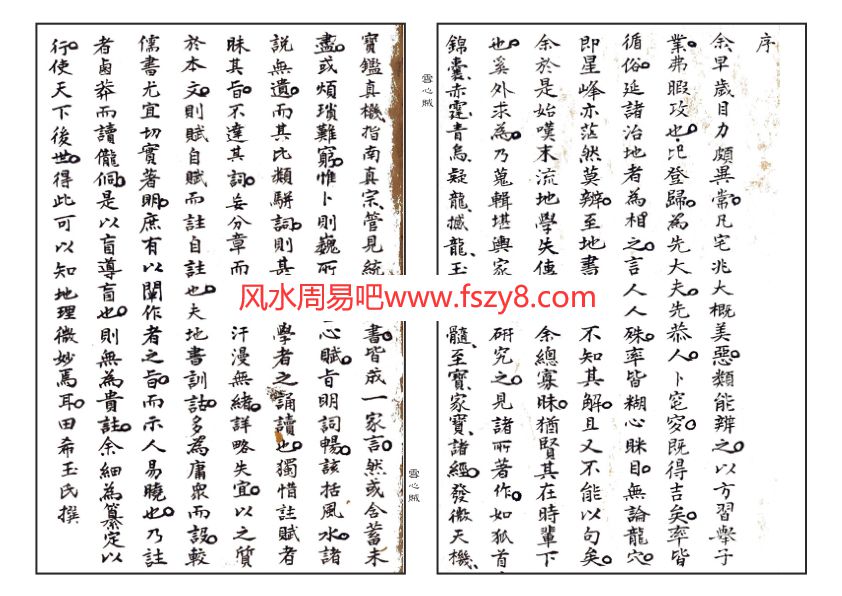 序
余早歲目力頗異常凡宅兆大概美惡類能辨之以方習舉子
業弗暇攻也比登歸為先大夫先恭人卜窀穸既得吉矣率皆
循俗延諸治地者為相之言人人殊率皆糊心眯目無論龍穴
即星峰亦茫然莫辨至地書不知其解且又不能以句矣
余於是始嘆末流地學失傳余總寡昧猶賢其在時輩下
也奚外求為乃蒐輯堪輿家研究之見諸所著作如狐首
錦囊赤霆青烏疑龍撼龍玉髓至寶家寶諸經發微天機
雪心賦
寶鑑真機指南真宗管見統書皆成一家言然或含蓄未
盡或煩瑣難窮惟卜則巍所心賦旨明詞暢該括風水諸
說無遺而其比類駢詞則甚學者之誦讀也獨惜註賦者
昧其旨不達其詞妄分章而汗漫無緒詳略失宜以之質
於本文則賦自賦而註自註也夫地書訓詁多為庸眾而設較
儒書尤宜切實著明庶有以闡作者之旨而示人易曉也乃註
者鹵莽而讀儱侗是以盲導盲也則無為貴註余細為纂定以
行使天下後世得此可以知地理微妙焉耳田希玉氏撰
雪心賦
风水周易吧www.fszy8.com